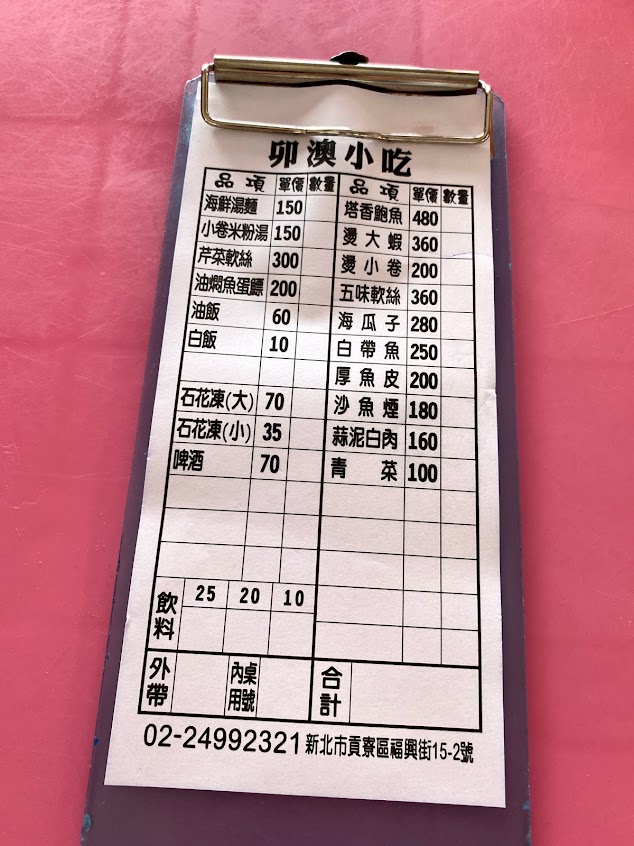 卯澳小吃
品項 單價 數量 品項 單價 數量
海鮮湯麵 150 塔香鮑魚 480
小卷米粉湯 150 燙大蝦 360
芹菜軟絲 300 燙小卷 200
油燜魚蛋鰾 200 五味軟絲 360
油飯 60 海瓜子 280
白飯 10 白帶魚 250
厚魚皮 200
石花凍(大) 70 沙魚煙 180
石花凍(小) 35 蒜泥白肉 160
啤酒 70 青菜 100
飲料 25 20 10
外帶 內用 桌號 合計
02-24992321 新北市貢寮區福興街15-2號